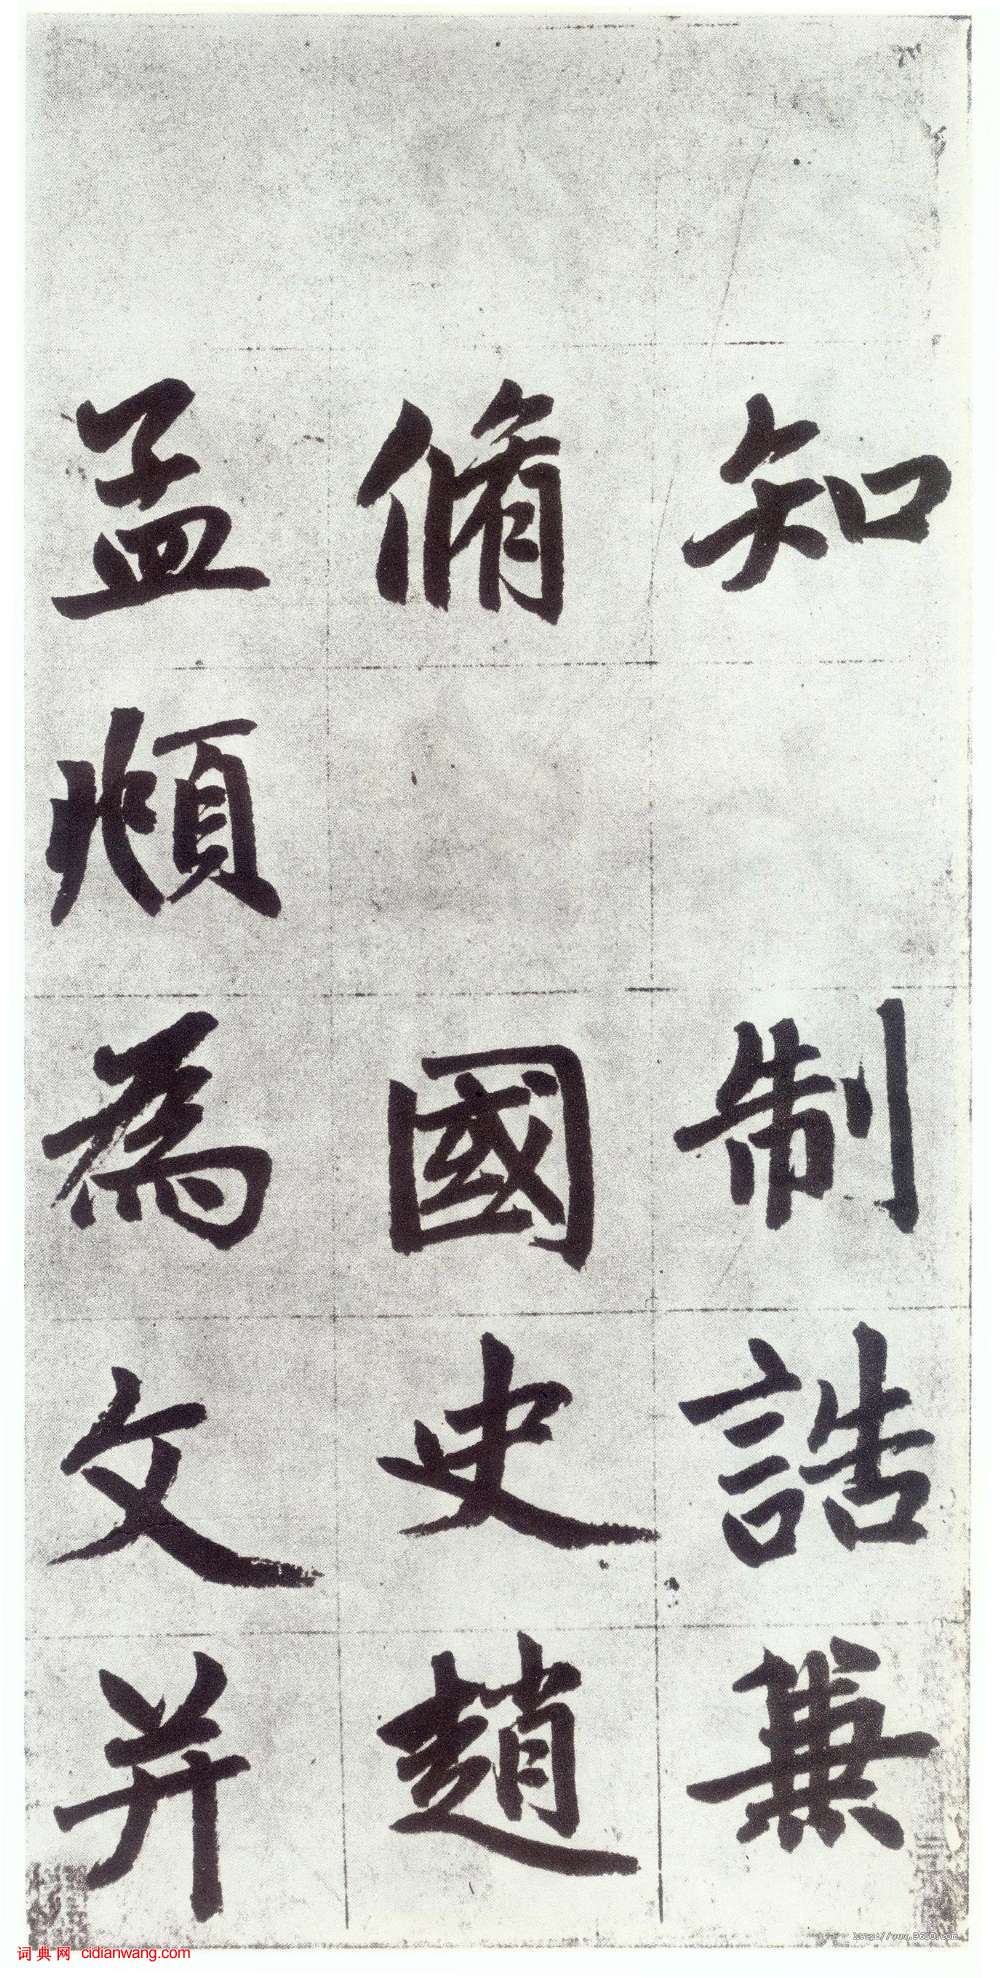 知制誥兼
脩國史趙
孟頫為文并
词典网 cidianwang.com